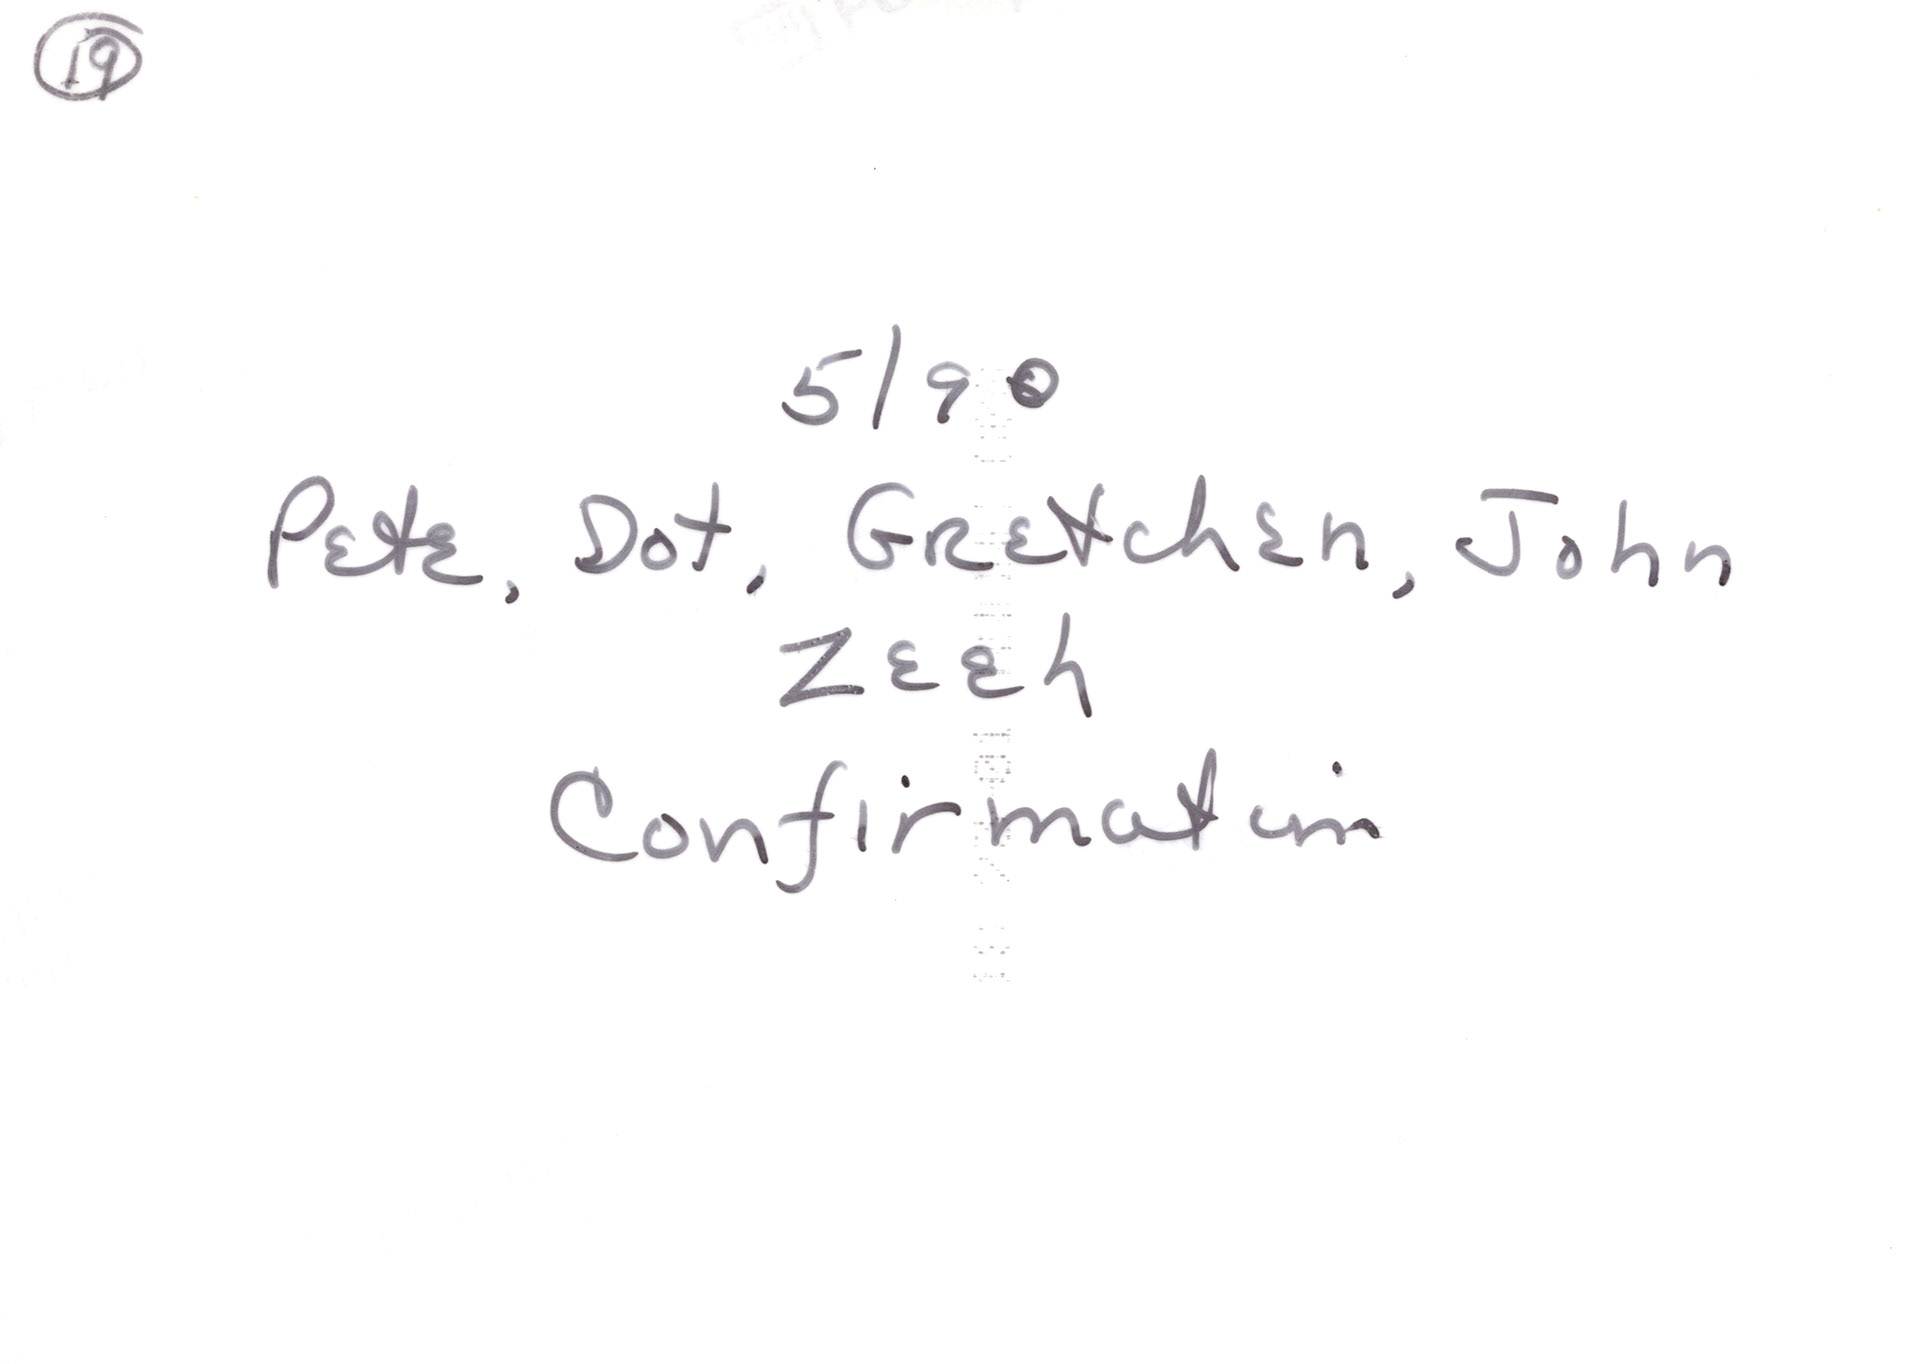 19
5/90
Pete, Dot, Gretchen, John
Zeeh
Confirmation